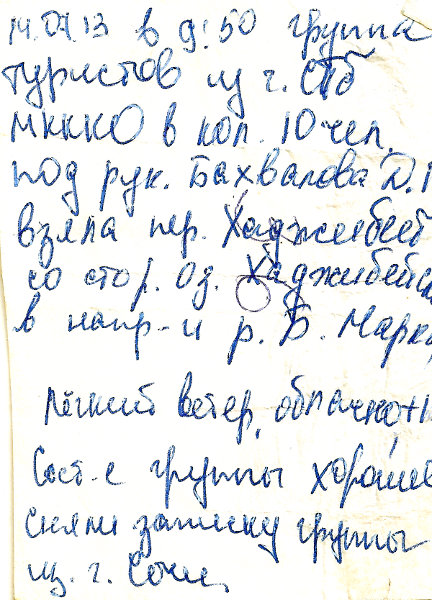 14.07.13 в 9:50 группа
туристов из г. СПб
МКККО в кол. 10 чел.
под рук. Бахвалова Д.
взяла пер. Хаджибей
со стор. оз. Хаджибейск
в напр-и р. Б. Марк
Лёгкий ветер, облачно, +1
Сост-е группы хорошее
Сняли записку группы
из г. Сочи